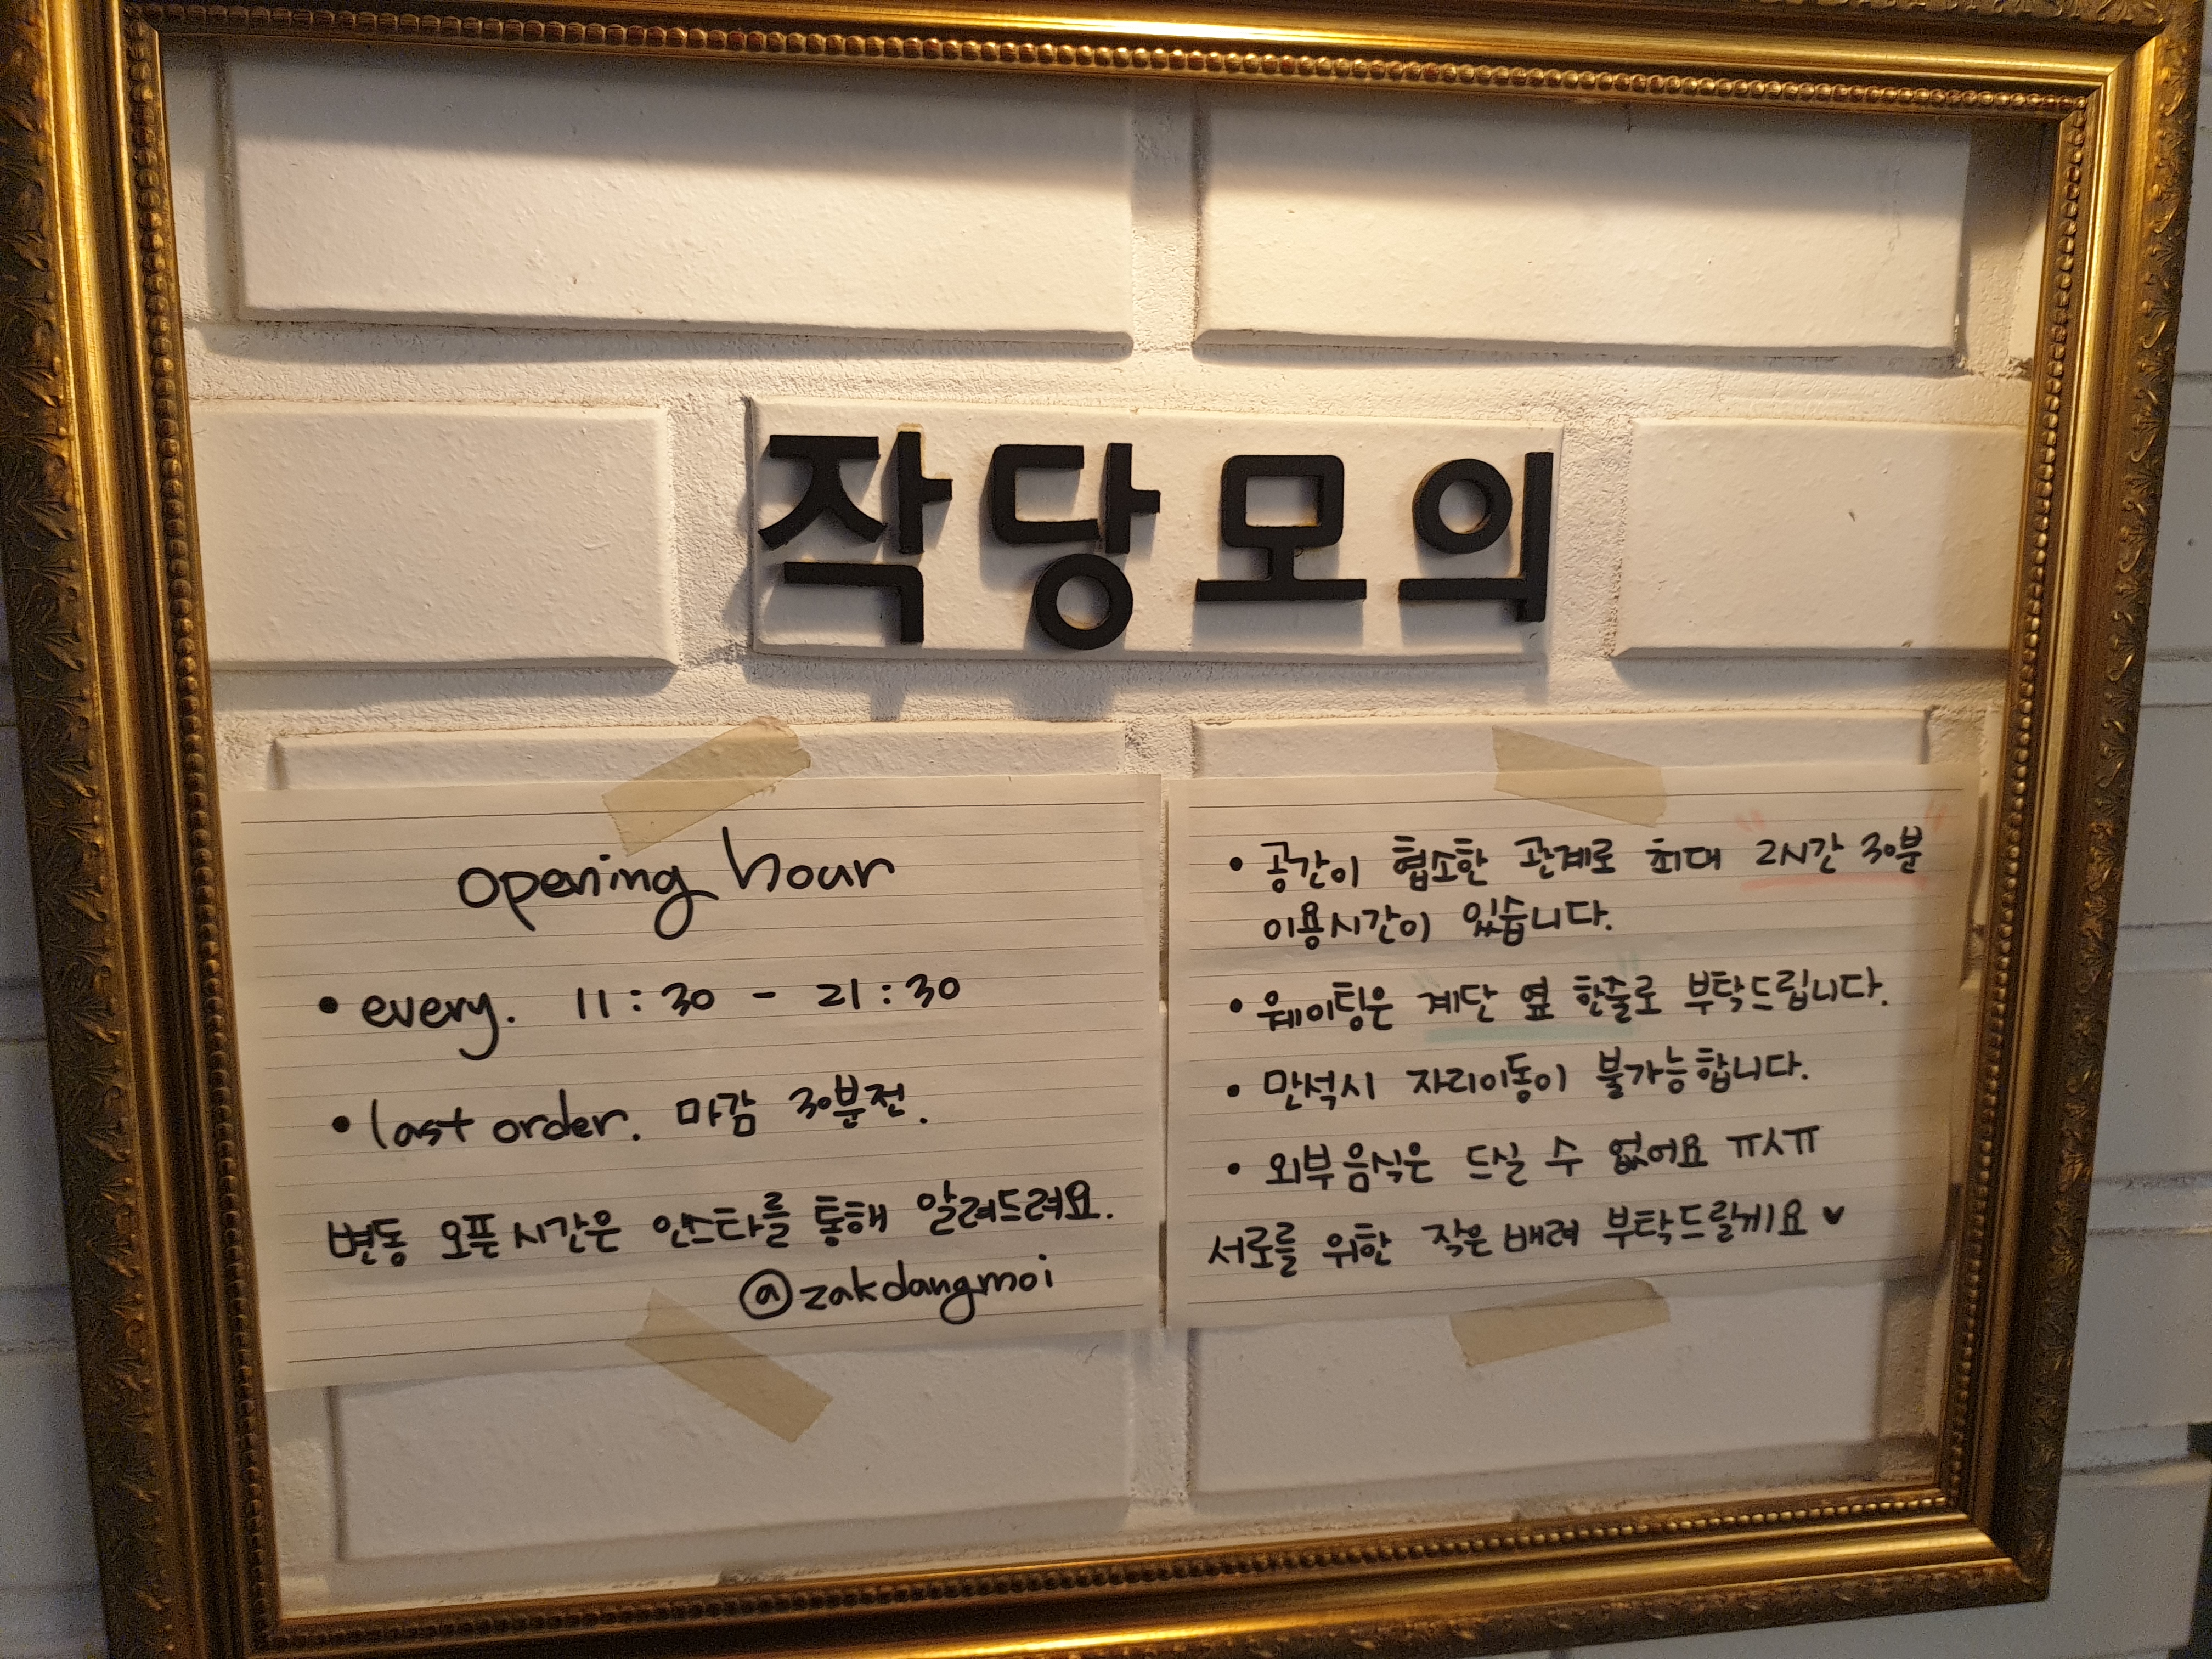 작당모의
opening hour
• every. 11:30 - 21:30
• last order. 마감 30분전.
변동 오픈시간은 인스타를 통해 알려드려요.
@zakdangmoi
• 공간이 협소한 관계로 최대 "2시간 30분"
이용시간이 있습니다.
• 웨이팅은 "계단 옆 한줄"로 부탁드립니다.
• 만석시 자리이동이 불가능합니다.
• 외부음식은 드실 수 없어요 ㅠㅅㅠ
서로를 위한 작은배려 부탁드릴게요 ♥